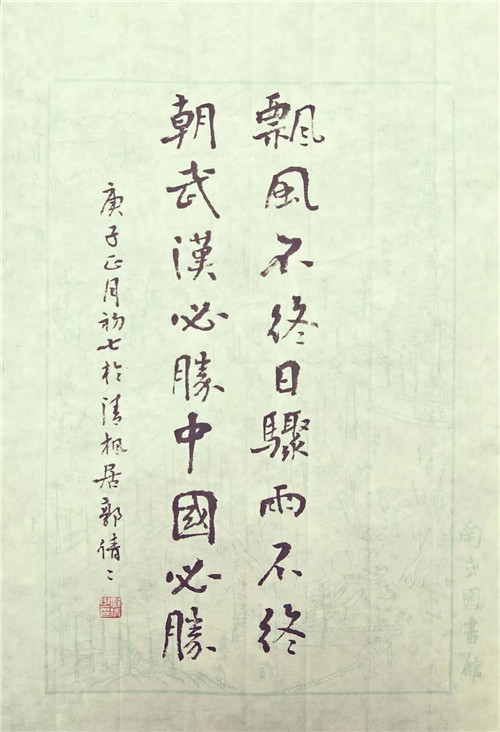 飄風不終日驟雨不終
朝武漢必勝中國必勝
庚子正月初七於清楓居郭倩二